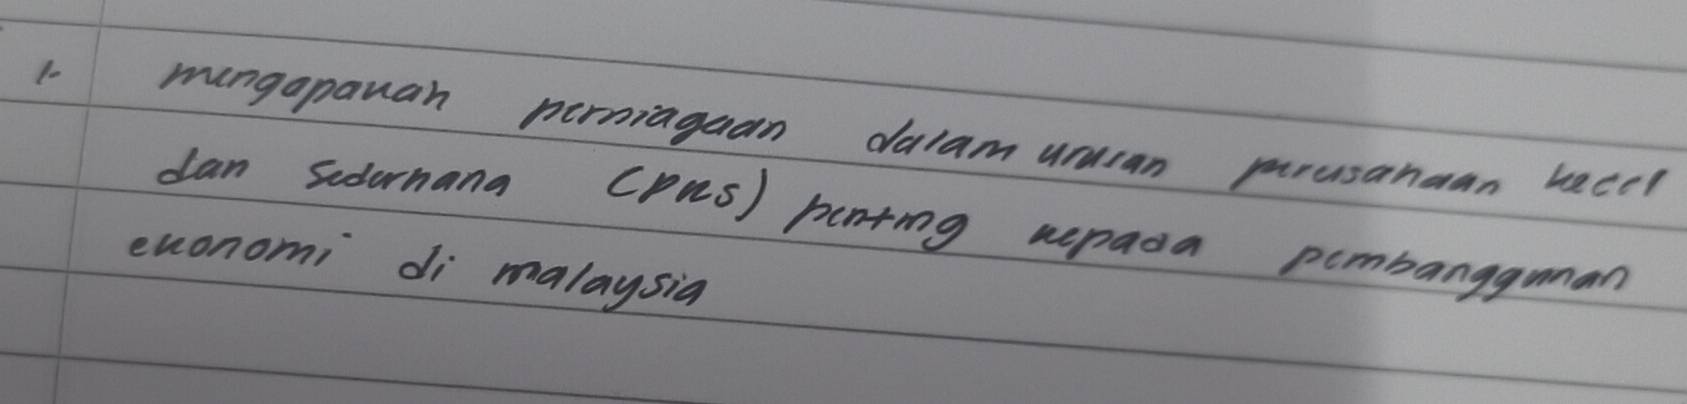 1. mengapakah perniagaan dalam urusan perusahaan kecil
dan sederhana (PKS) penting kepada pembanggunan
ekonomi di malaysia